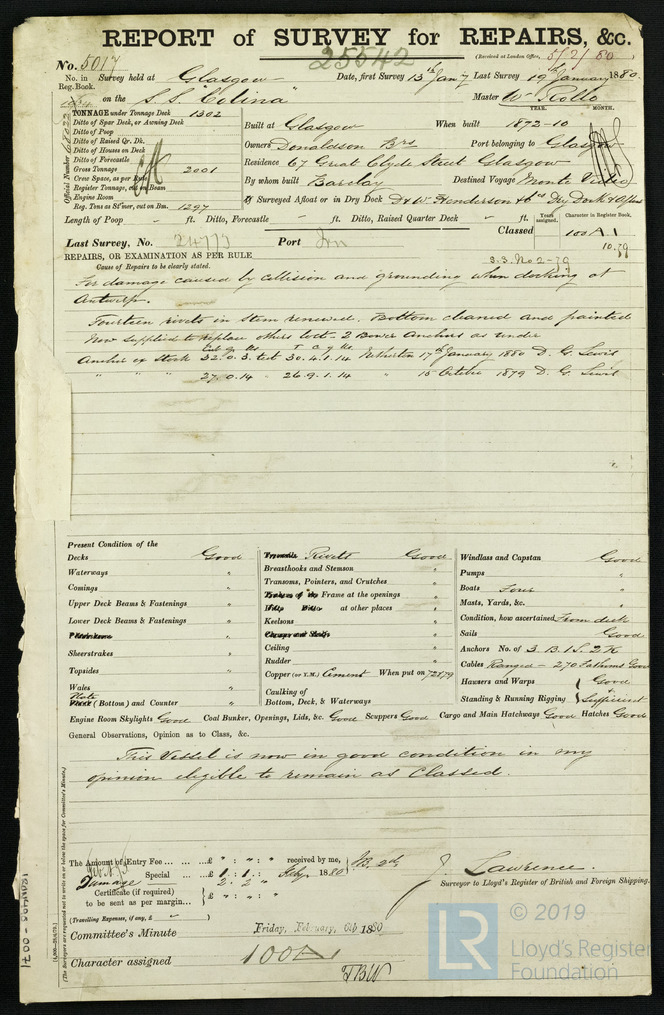 REPORT of SURVEY for REPAIRS, &c.
25542
(Received at London Office, 5/2/80
No. 5017
No. in Reg. Book.
Survey held at Glasgow Date, first Survey 13th Jany Last Survey 19th January 1880
on the S.S. "Colina" Master W Rollo
TONNAGE under Tonnage Deck 1302
Ditto of Spar Deck, or Awning Deck
Ditto of Poop
Ditto of Raised Qr. Dk.
Ditto of Houses on Deck
Ditto of Forecastle
Gross Tonnage 2001
Crew Space, as per Rule
Register Tonnage, cut on Beam
Engine Room
Reg. Tons as St'mer, cut on Bm. 1297
Official Number
YEAR. MONTH.
Built at Glasgow When built 1872-10
Owners Donaldson Brs Port belonging to Glasgow
Residence 67 Great Clyde Street Glasgow
By whom built Barclay Destined Voyage Monte Video
If Surveyed Afloat or in Dry Dock D & W. Henderson & Cos Dry Dock & Afloat
Length of Poop " ft. Ditto, Forecastle " ft. Ditto, Raised Quarter Deck " ft.
Years assigned. Character in Register Book.
Classed 100 A.1
10.79
Last Survey, No. 24773 Port
S.S. No 2-79
REPAIRS, OR EXAMINATION AS PER RULE
Cause of Repairs to be clearly stated.
For damage caused by collision and grounding when docking at
Antwerp.
Fourteen rivets in stem renewed. Bottom cleaned and painted
Now supplied to replace others lost - 2 Bower Anchors as under
Anchor ex Stock 32.0.3. test 30.4.1.14 Netherton 17th January 1880 D. G. Lewis
" " " 27.0.14 26.9.1.14 " 15 October 1879 D. G. Lewis
Present Condition of the
Decks Good
Waterways "
Comings "
Upper Deck Beams & Fastenings "
Lower Deck Beams & Fastenings "
Sheerstrakes "
Topsides "
Wales "
(Bottom) and Counter "
Rivets Good
Breasthooks and Stemson "
Transoms, Pointers, and Crutches "
Frame at the openings "
at other places "
Keelsons "
Ceiling "
Rudder "
Copper (or Y.M.) Cement When put on
Caulking of Bottom, Deck, & Waterways
Windlass and Capstan Good
Pumps "
Boats Four "
Masts, Yards, &c. "
Condition, how ascertained From deck
Sails Good
Anchors No. of 3 B. 1 S. 2 K
Cables Ranged - 270 Fathoms Good
Hawsers and Warps Good
Standing & Running Rigging Sufficient
Engine Room Skylights Good Coal Bunker, Openings, Lids, &c. Good Scuppers Good Cargo and Main Hatchways Good Hatches Good
General Observations, Opinion as to Class, &c.
This Vessel is now in good condition in my
opinion eligible to remain as Classed.
(The Surveyors are requested not to write on or below the space for Committee's Minute.)
The Amount of Entry Fee ... £ " : " : " received by me,
Special ... £ 1 : 1 : " Feby. 1880
Damage 2 : 2 "
Certificate (if required) to be sent as per margin... £ " : " : "
(Travelling Expenses, if any, £ " )
J. Lawrence.
Surveyor to Lloyd's Register of British and Foreign Shipping.
Committee's Minute Friday, February, 6th 1880
Character assigned 100A
LR
© 2019
Lloyd's Register
Foundation